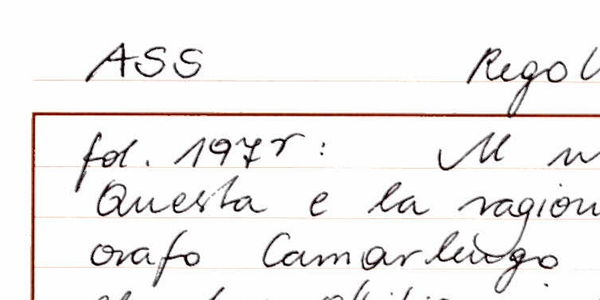 ASS Rego
fol. 197r: M
Questa e la ragion
orafo Camarlengo